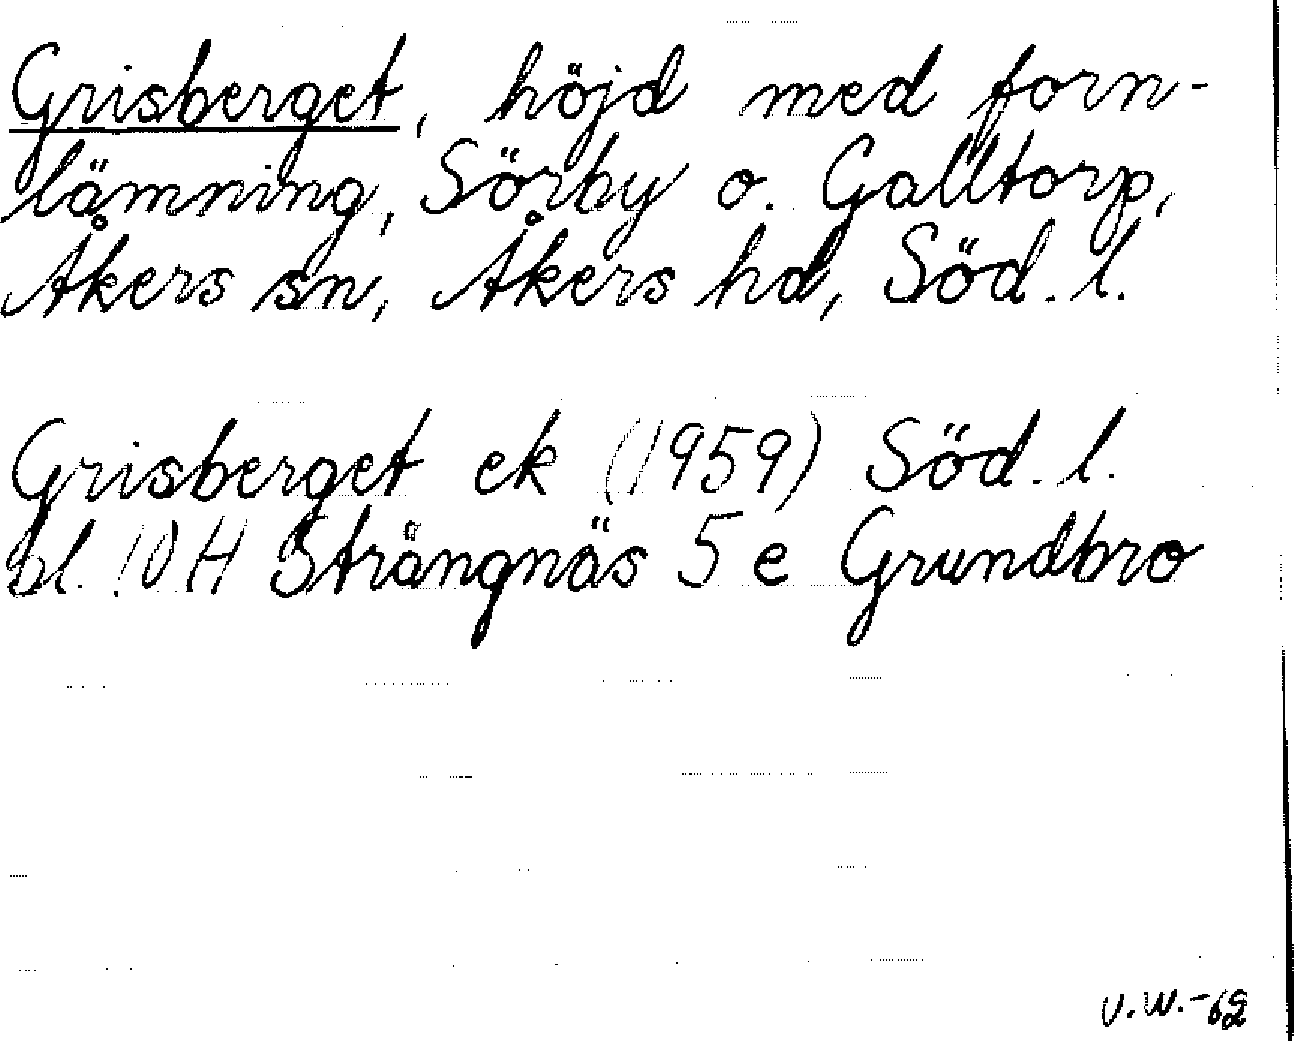 Grisberget, höjd med forn-
lämning, Sörby o. Galltorp,
Åkers sn, Åkers hd, Söd. l.
Grisberget ek (1959) Söd. l.
bl. 10 H Strängnäs 5 e Grundbro
V.W.-62